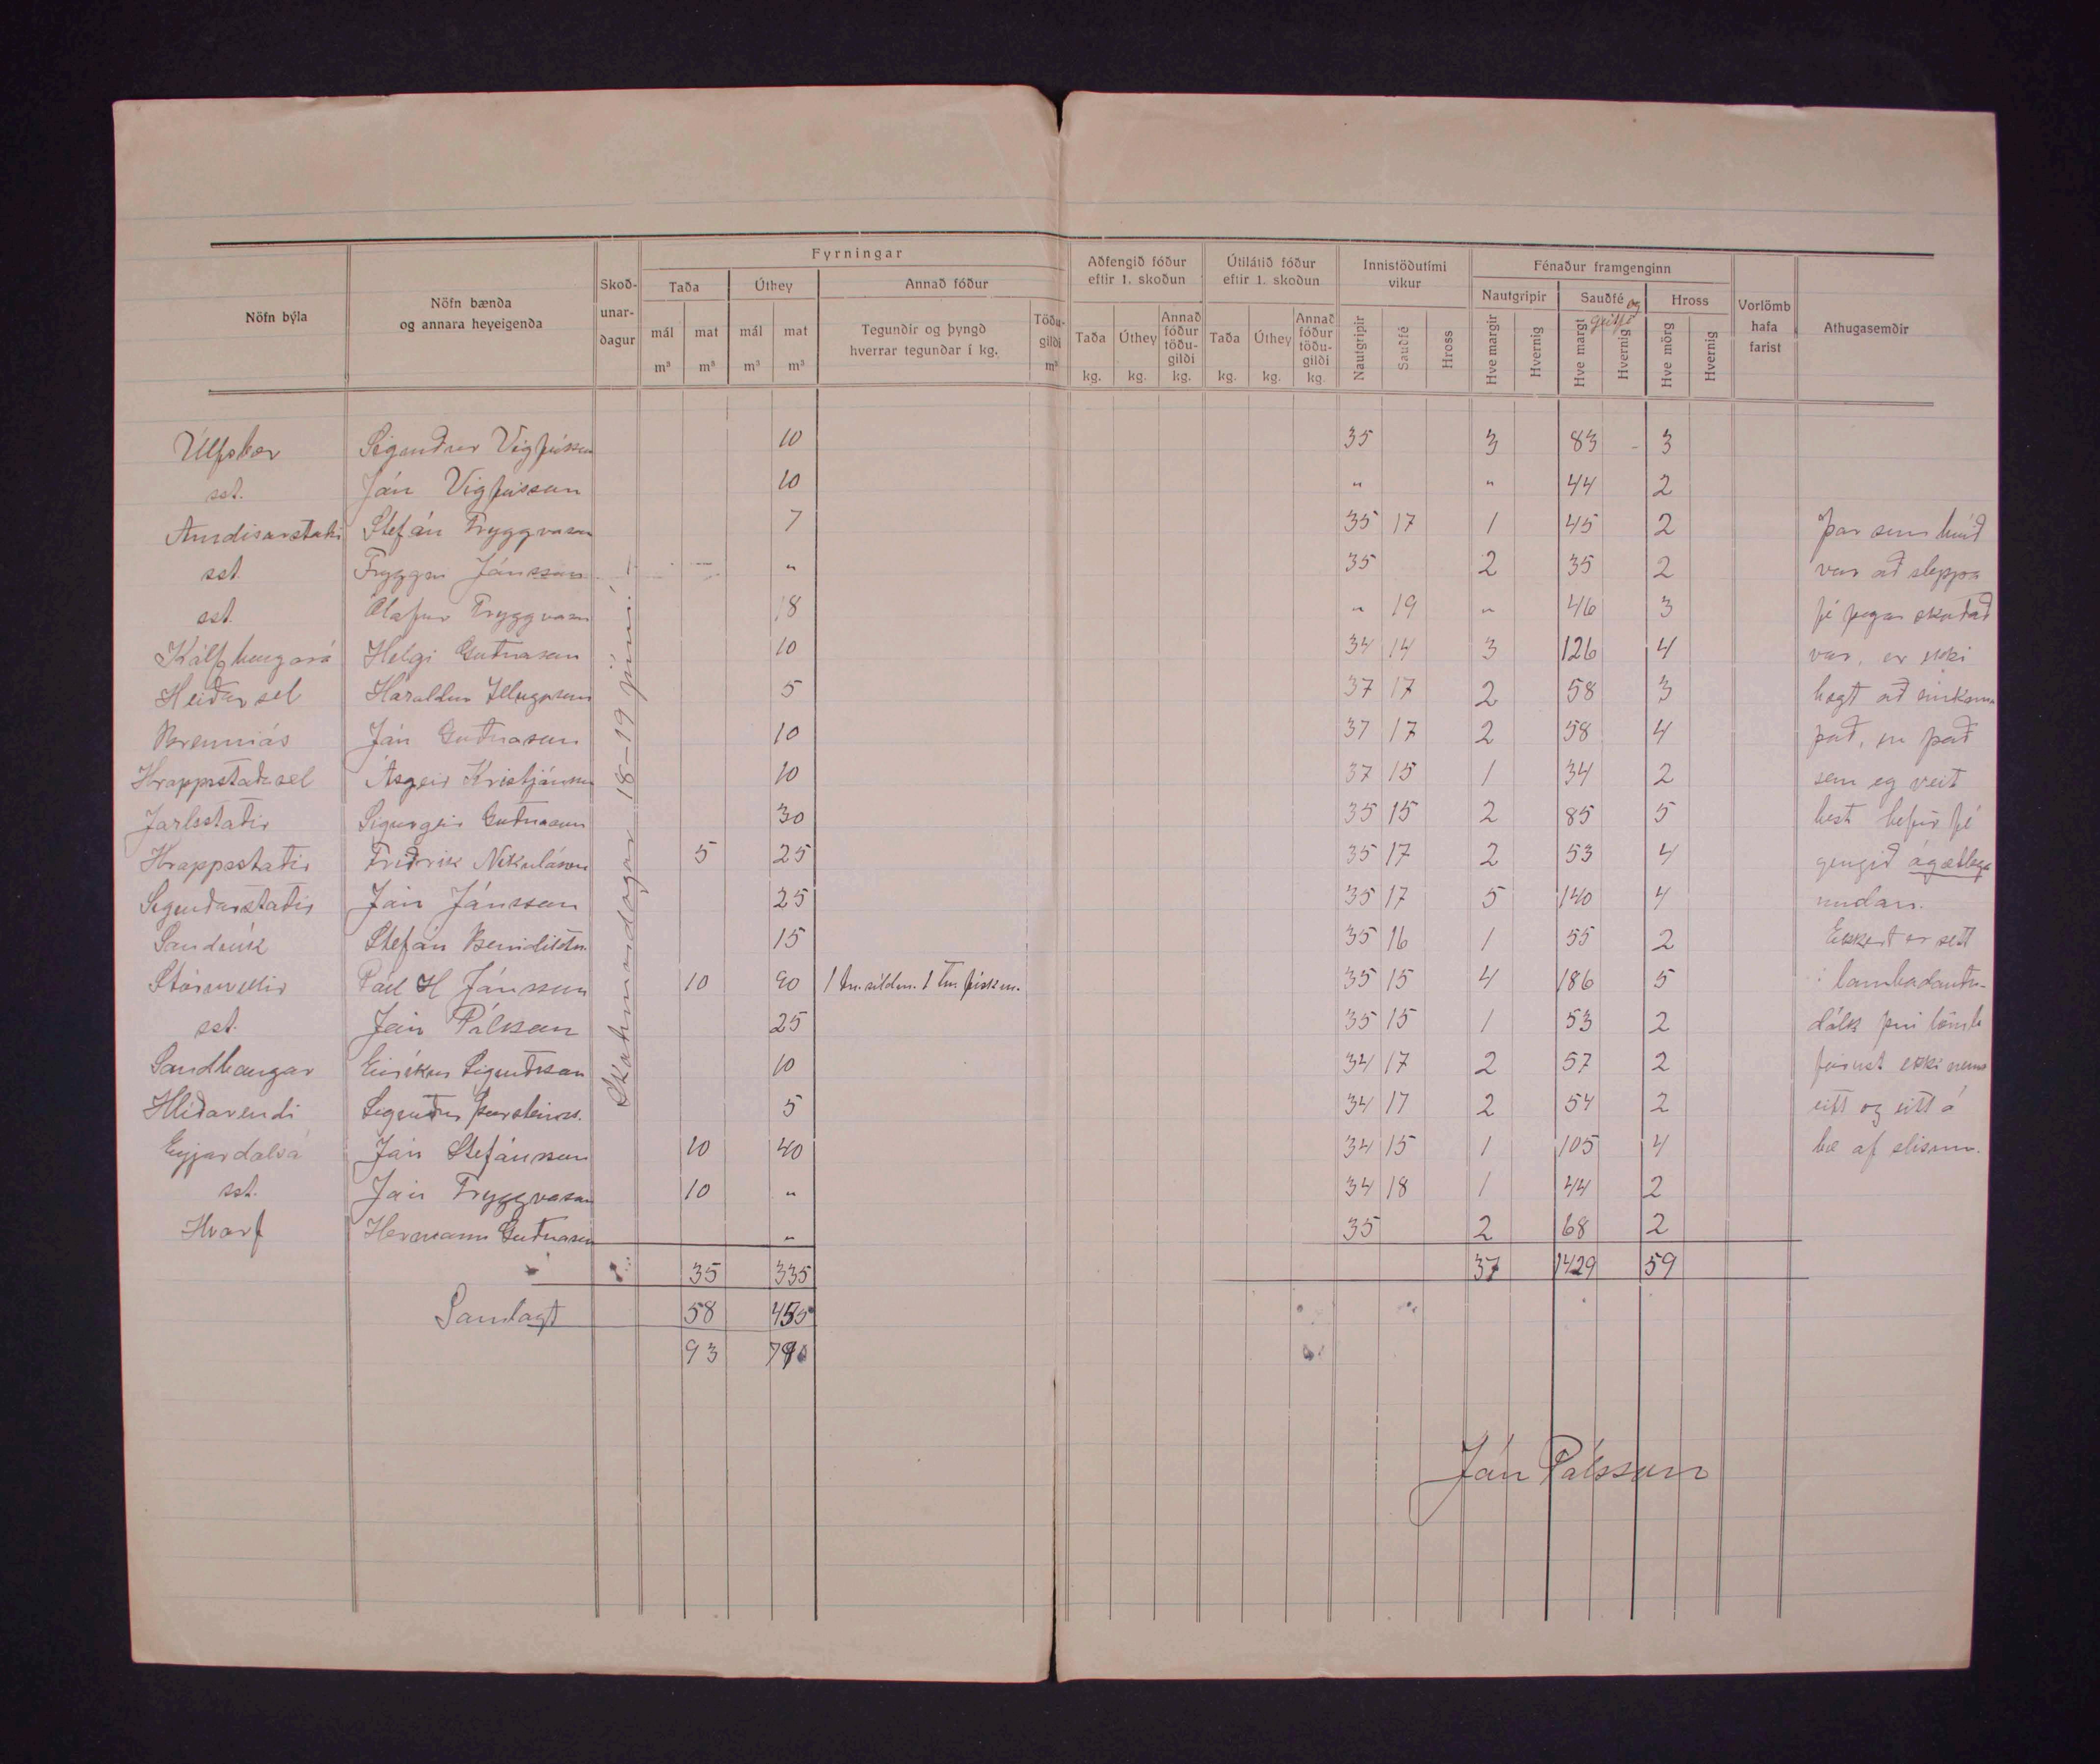 Fyrningar
Aðfengið fóður eftir 1. skoðun
Útilátið fóður eftir 1. skoðun
Innistöðutími vikur
Fénaður framgenginn
Nöfn býla
Nöfn bænda og annara heyeigenda
Skoð-unar-dagur
Taða
Úthey
Annað fóður
Nautgripir
Sauðfé og geitfé
Hross
Vorlömb hafa farist
Athugasemdir
mál m³
mat m³
mál m³
mat m³
Tegundir og þyngd hverrar tegundar í kg.
Töðu-gildi m³
Taða kg.
Úthey kg.
Annað fóður töðu-gildi kg.
Taða kg.
Úthey kg.
Annað fóður töðu-gildi kg.
Nautgripir
Sauðfé
Hross
Hve margir
Hvernig
Hve margt
Hvernig
Hve mörg
Hvernig
Skoðunardagar 18-19 júní.
Úlfsbær Sigurður Vigfússon 10 35 3 83 - 3
sst. Jón Vigfússon 10 " " 44 2
Arndísarstaðir Stefán Tryggvason 7 35 17 1 45 2 Þar sem búið
sst. Tryggvi Jónsson " 35 2 35 2 var að sleppa
sst. Ólafur Tryggvason 18 " 19 " 46 3 fé þegar skoðað
Kálfborgará Helgi Guðnason 10 34 14 3 126 4 var, er ekki
Heiðarsel Haraldur Illugason 5 37 17 2 58 3 hægt að einkenna
Brenniás Jón Guðnason 10 37 17 2 58 4 það, en það
Hrappstaðasel Ásgeir Kristjánsson 10 37 15 1 34 2 sem eg veit
Jarlsstaðir Sigurgeir Guðnason 30 35 15 2 85 5 best hefur fé
Hrappsstaðir Friðrik Nikulásson 5 25 35 17 2 53 4 gengið ágætlega
Sigurðarstaðir Jón Jónsson 25 35 17 5 140 4 undan.
Sandvík Stefán Benidiktsn. 15 35 16 1 55 2 Ekkert er sett
Stóruvellir Páll H Jónsson 10 90 1 tn. síldm. 1 tn. fiskim. 35 15 4 186 5 í lambadauða-
sst. Jón Pálsson 25 35 15 1 53 2 dálk því lömb
Sandhaugar Eiríkur Sigurðsson 10 34 17 2 57 2 fórust ekki nema
Hlíðarendi Sigurður Þorsteinss. 5 34 17 2 54 2 eitt og eitt á
Eyjardalsá Jón Stefánsson 10 40 34 15 1 105 4 bæ af slisum.
sst. Jón Tryggvason 10 " 34 18 1 44 2
Hvarf Hermann Guðnason " 35 2 68 2
35 335 37 1429 59
Samlagt 58 455
93 790
Jón Pálsson